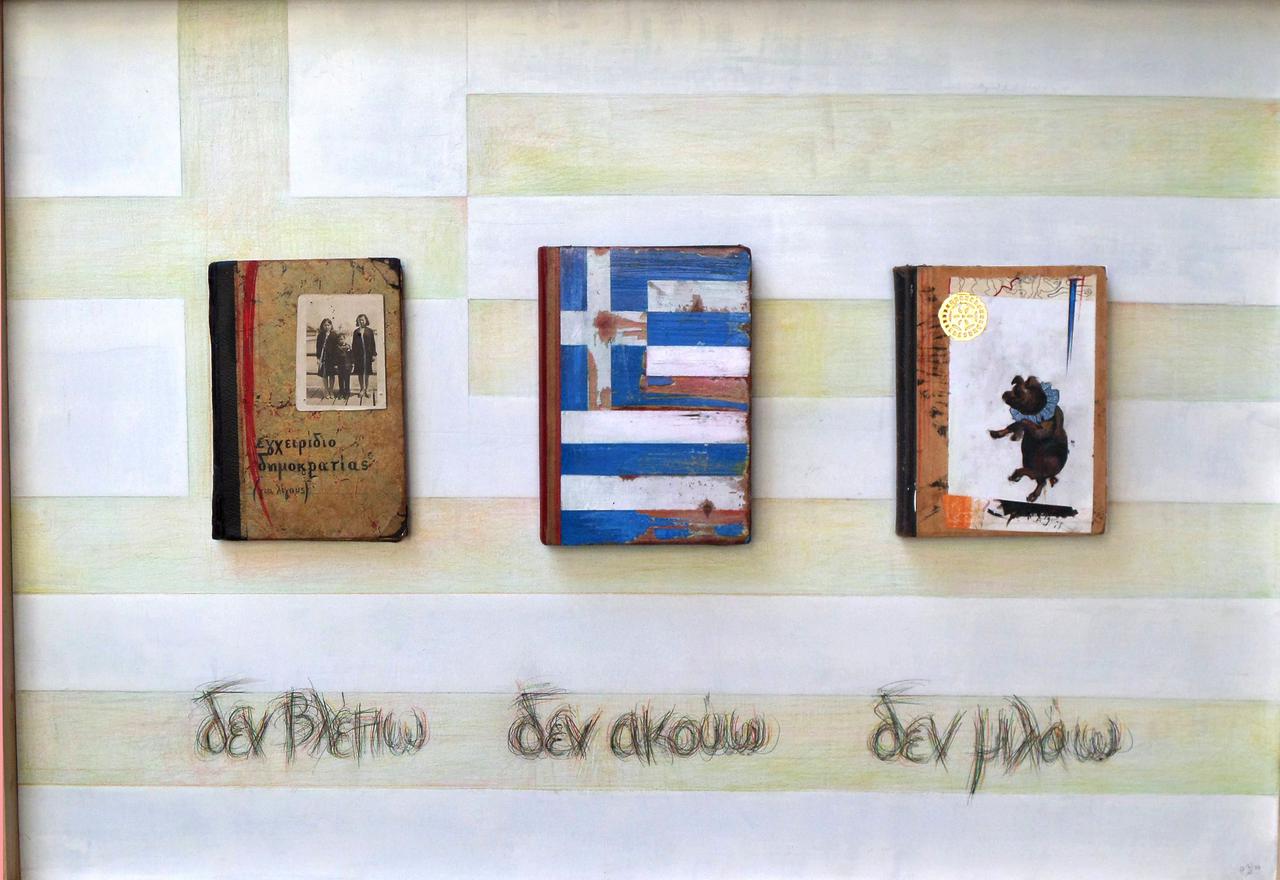 εγχειρίδιο
δημοκρατίας
(για λίγους)
δεν βλέπω δεν ακούω δεν μιλάω